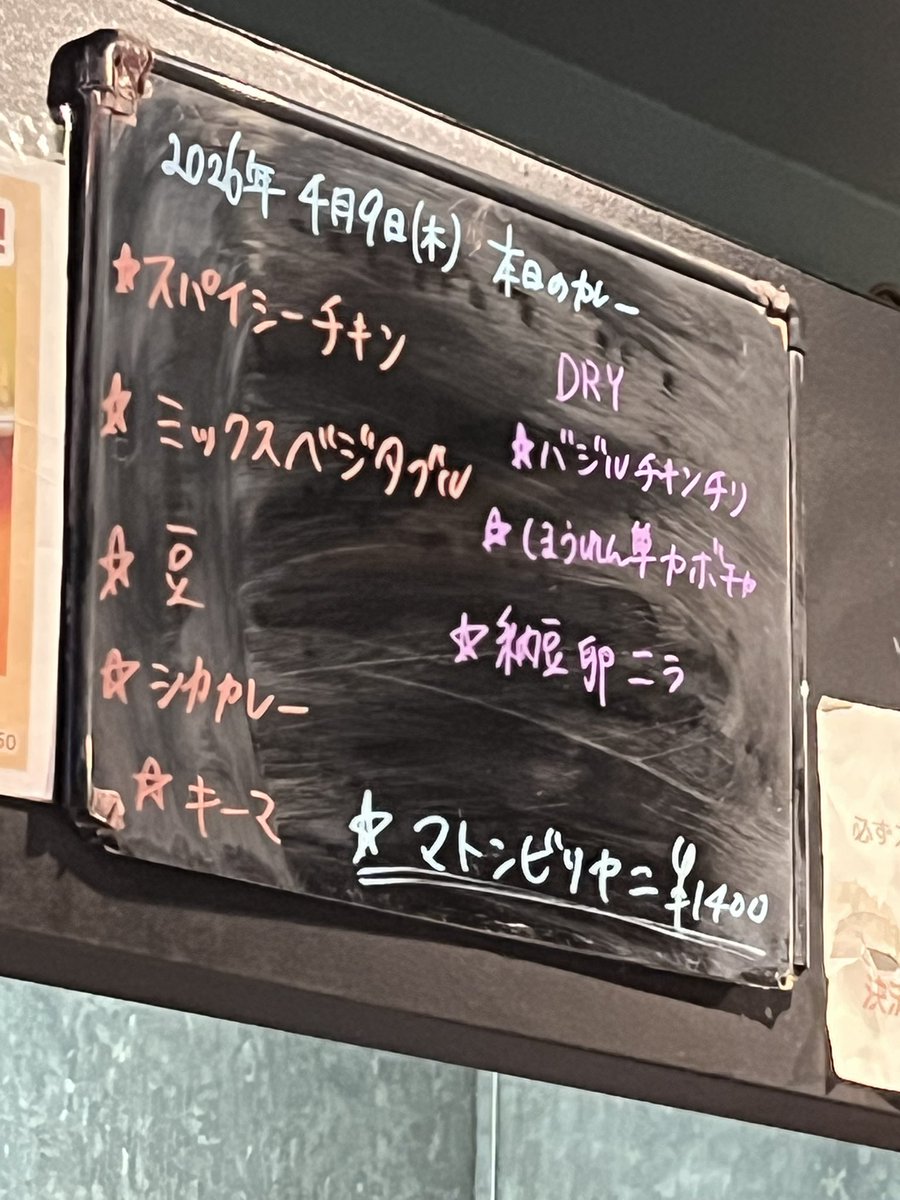 2026年 4月9日(木) 本日のカレー
☆スパイシーチキン
☆ ミックスベジタブル
☆ 豆
☆ シカカレー
☆ キーマ
DRY
☆バジルチキンチリ
☆ほうれん草カボチャ
☆納豆卵ニラ
☆ マトンビリヤニ ¥1400
50
必ず